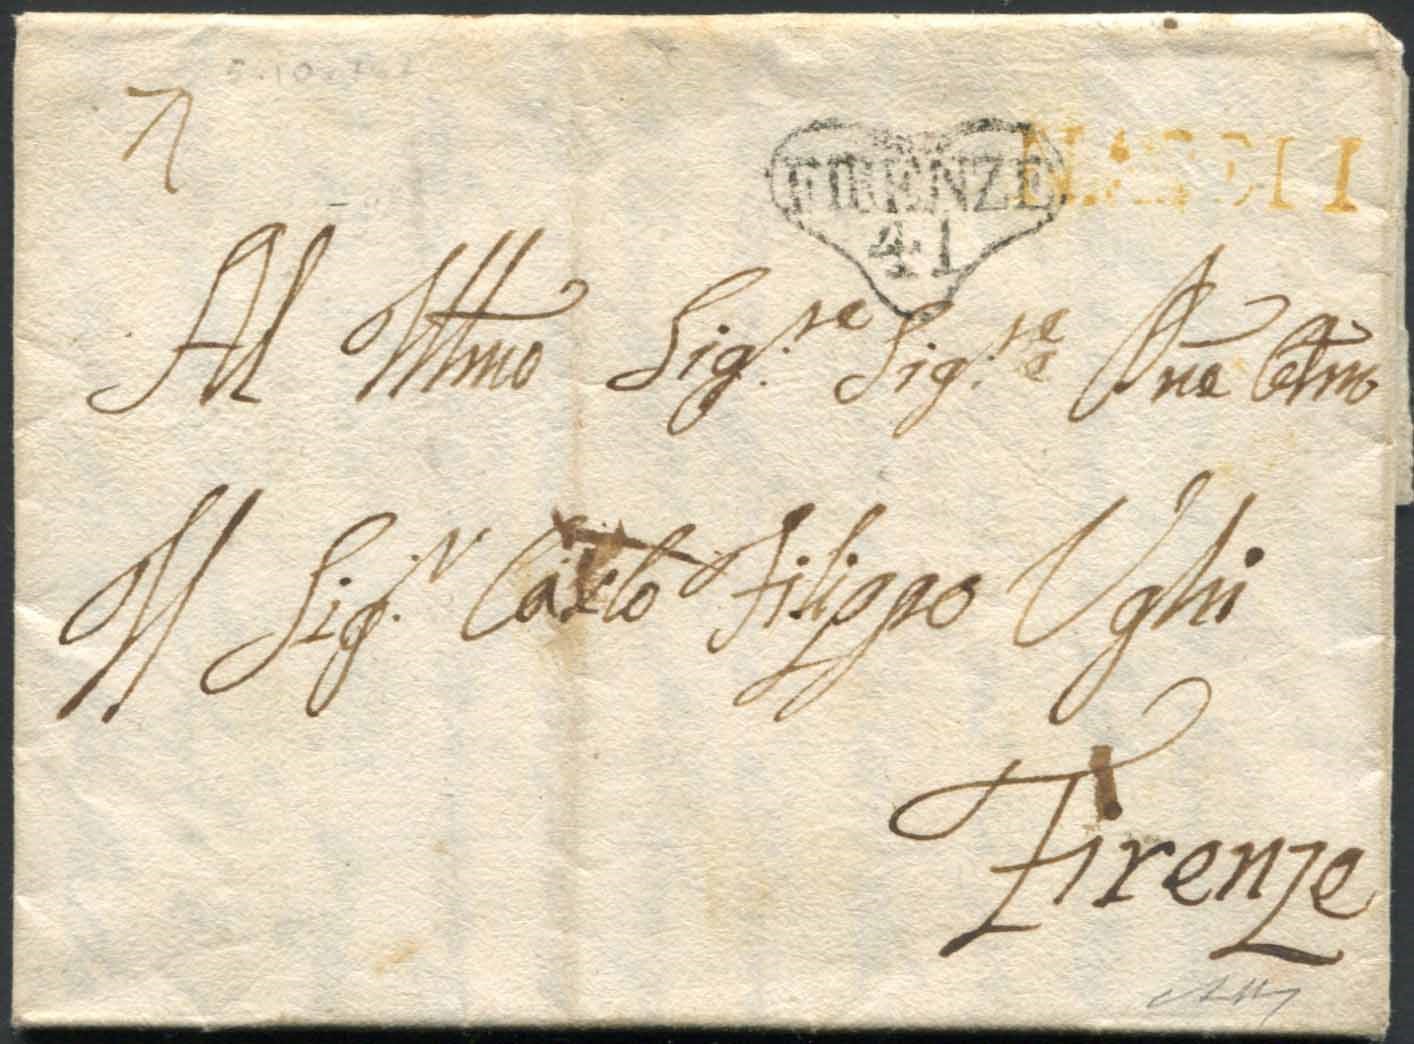 FIRENZE
41
NAPOLI
Al Illmo Sig.re Sig.re Prne Colmo
Il Sig.r Carlo Filippo Ughi
Firenze